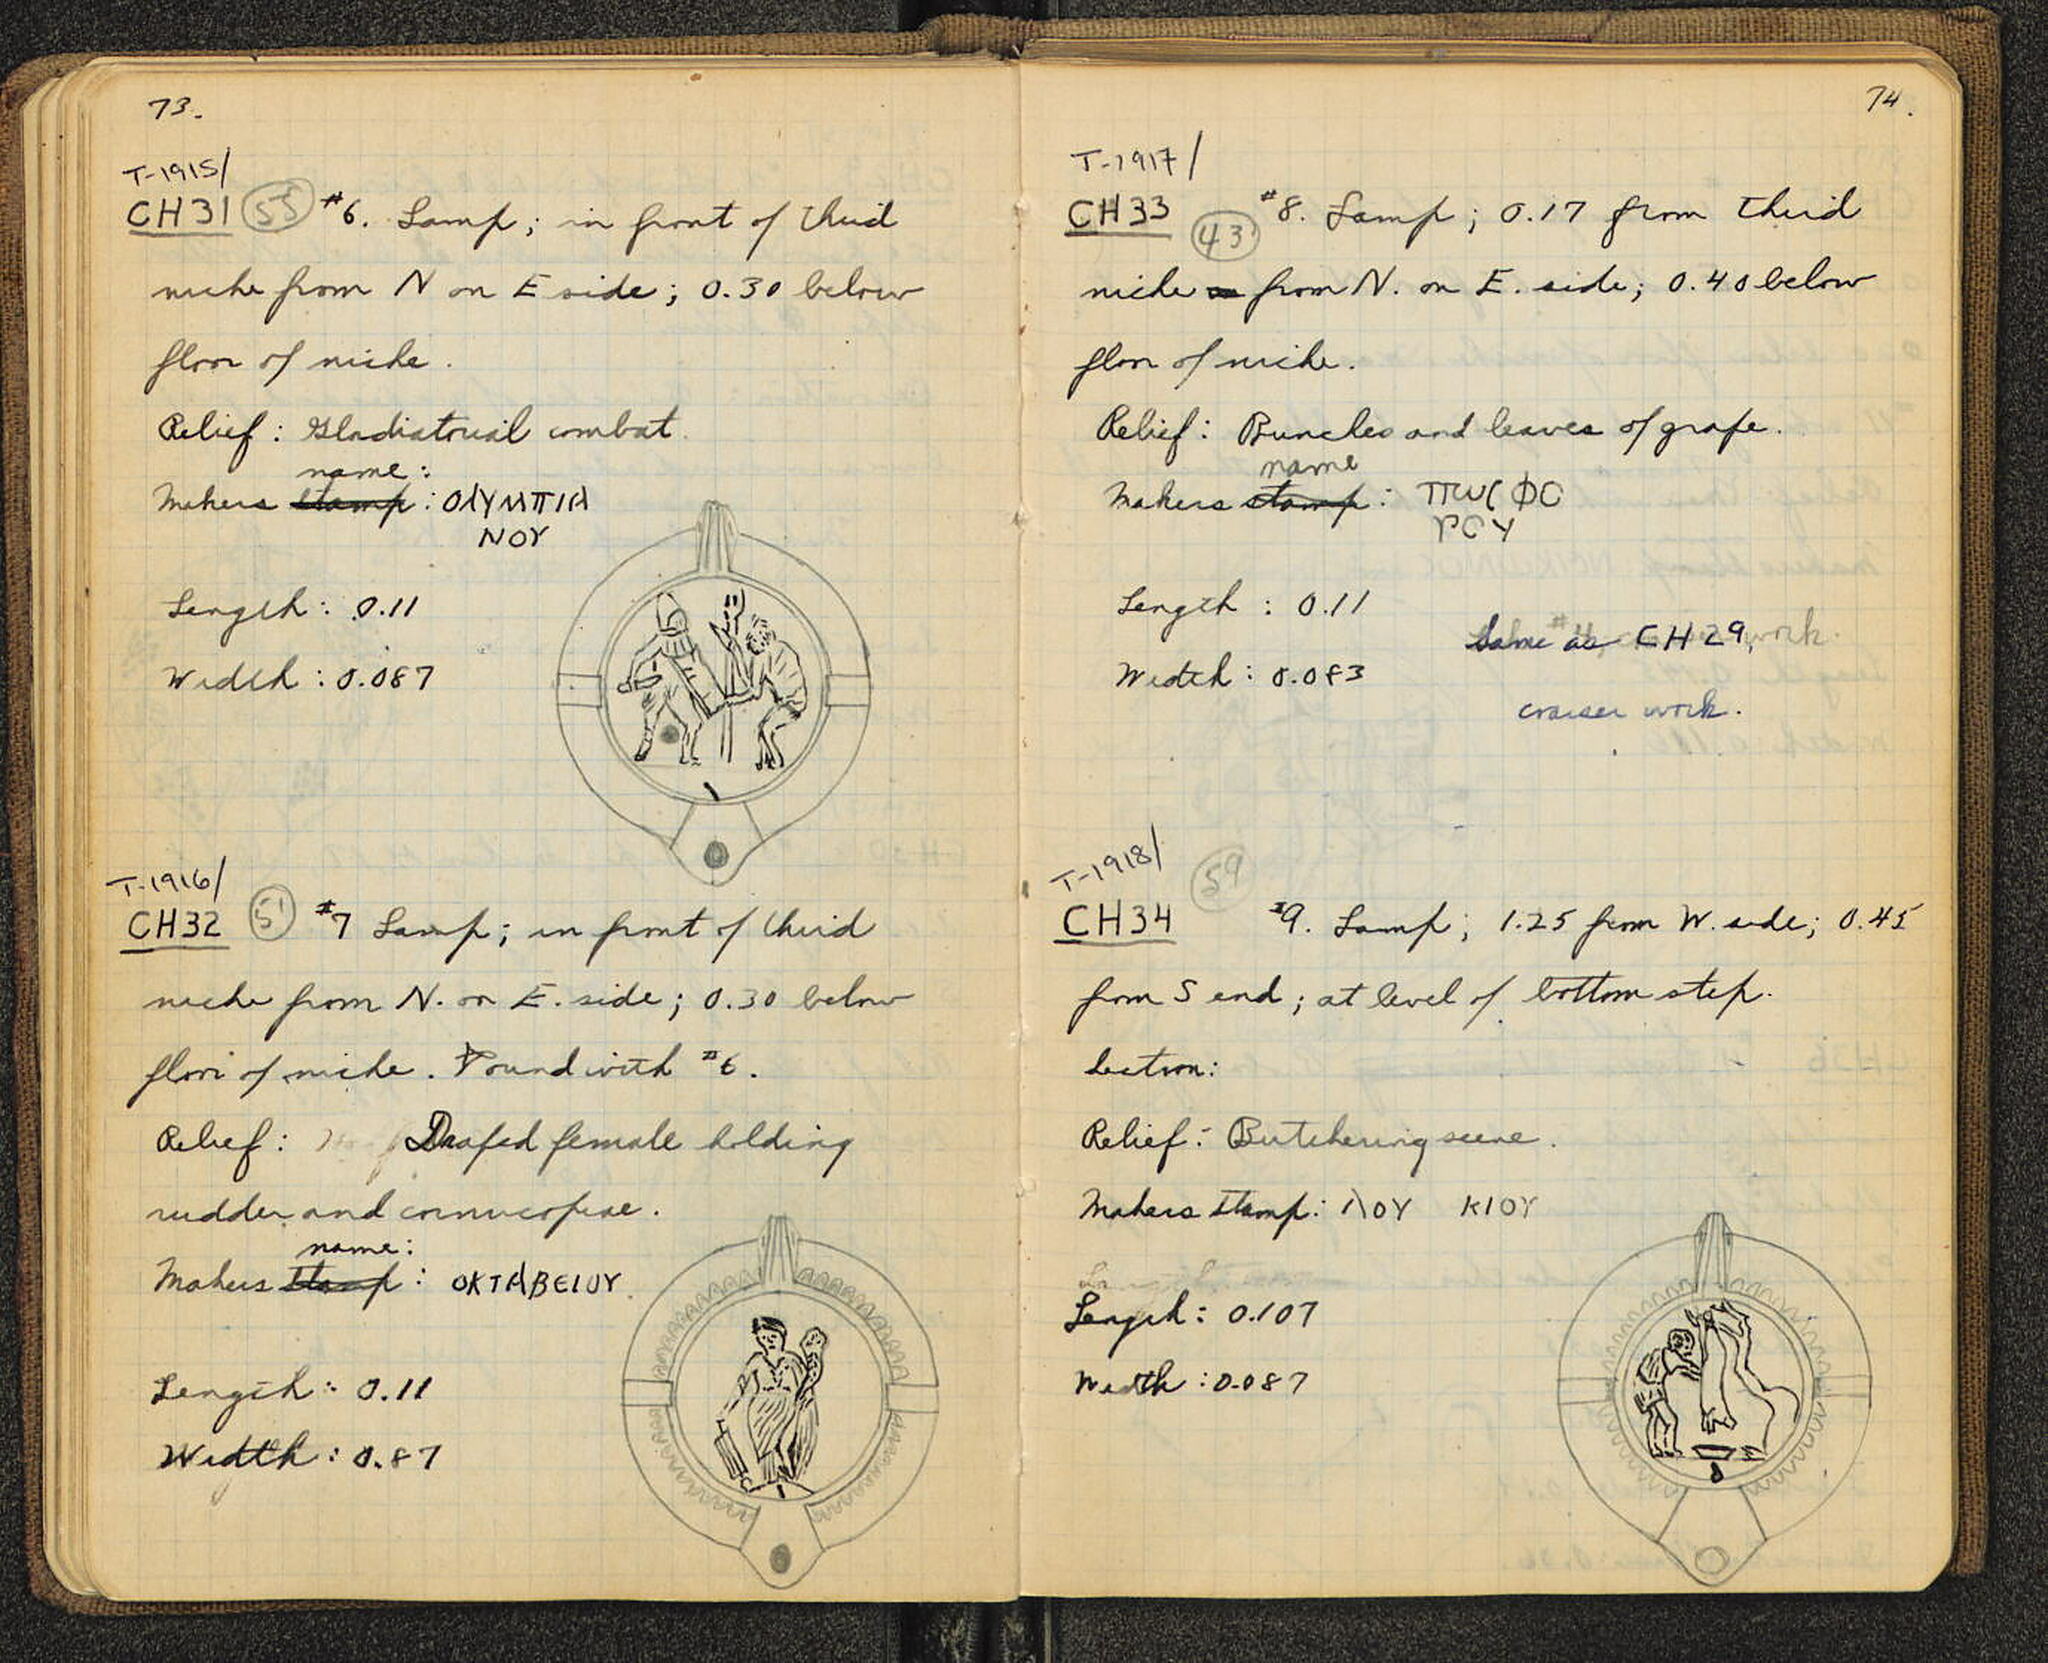 73.
T-1915/
CH31 55 #6. Lamp; in front of third
niche from N on E side; 0.30 below
floor of niche.
Relief: Gladiatorial combat.
name:
Makers stamp: ΟΛΥΜΠΙΑ
ΝΟΥ
Length: 0.11
Width: 0.087
T-1916/
CH32 51 #7 Lamp; in front of third
niche from N. on E. side; 0.30 below
floor of niche. Found with #6.
Relief: Draped female holding
rudder and cornucopiae.
name:
Makers stamp: ΟΚΤΑΒΕΙΟΥ
Length: 0.11
Width: 0.87
74.
T-1917/
CH33 43 #8. Lamp; 0.17 from third
niche on from N. on E. side; 0.40 below
floor of niche.
Relief: Bunches and leaves of grape.
name
Makers stamp: ΠΩϹΦΟ
ΡΟΥ
Length: 0.11
Same as CH29, work.
Width: 0.083
coarser work.
T-1918/
CH34 59 #9. Lamp; 1.25 from W. side; 0.45
from S end; at level of bottom step.
Section:
Relief: Butchering scene.
Makers stamp: ΛΟΥ ΚΙΟΥ
Length: 0.107
Width: 0.087